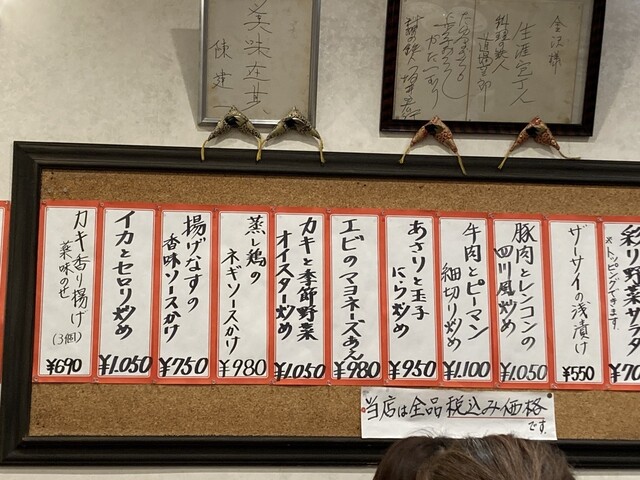 美味在其
陳建一
金沢様
生涯包丁人
料理の鉄人
道場六三郎
彩り野菜サラダ
※トッピングできます
¥70
ザーサイの浅漬け
¥550
豚肉とレンコンの
四川風炒め
¥1,050
牛肉とピーマン
細切り炒め
¥1,100
あさりと玉子
にら炒め
¥950
エビのマヨネーズあん
¥980
カキと季節野菜
オイスター炒め
¥1,050
蒸し鶏の
ネギソースかけ
¥980
揚げなすの
香味ソースかけ
¥750
イカとセロリ炒め
¥1,050
カキ香り揚げ
薬味のせ
(3個)
¥690
当店は全品税込み価格
です。